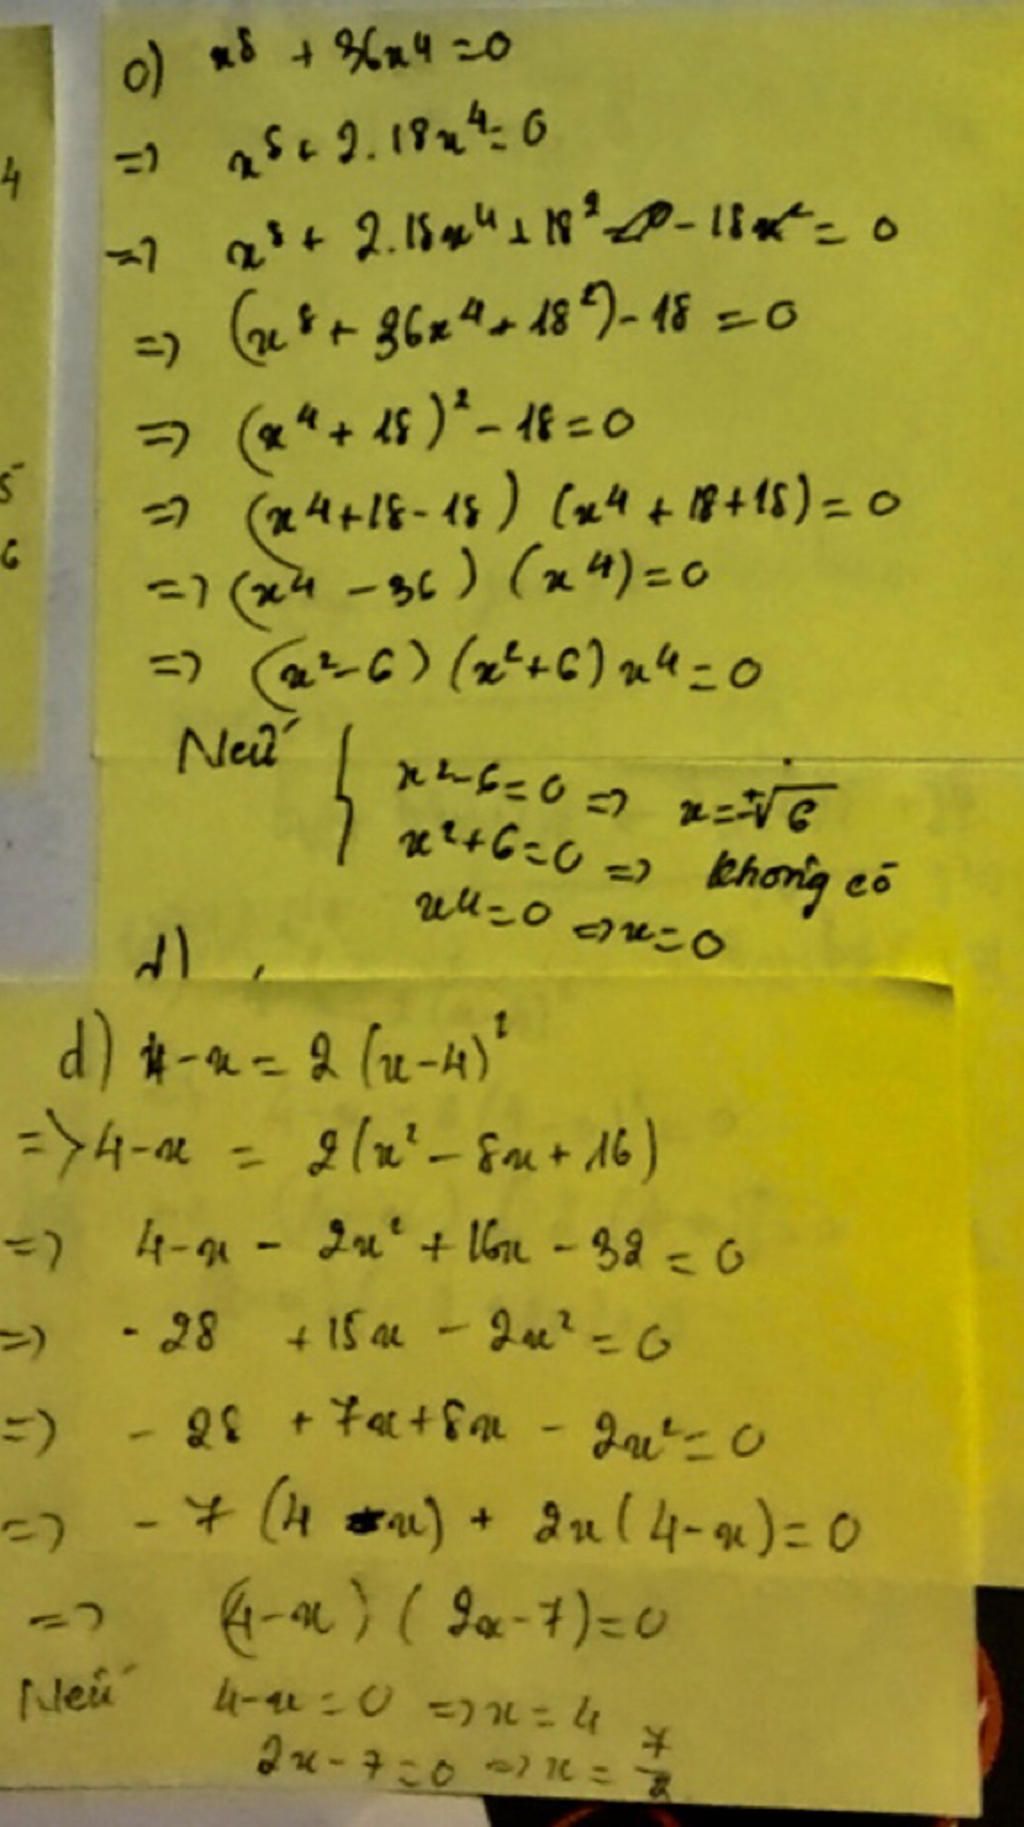 4
5
6
c) x⁸ + 36x⁴ = 0
=> x⁸ + 2.18x⁴ = 0
=> x⁸ + 2.18x⁴ + 18² - 18² = 0
=> (x⁸ + 36x⁴ + 18²) - 18 = 0
=> (x⁴ + 18)² - 18 = 0
=> (x⁴ + 18 - 18) (x⁴ + 18 + 18) = 0
=> (x⁴ - 36) (x⁴) = 0
=> (x² - 6) (x² + 6) x⁴ = 0
Nếu { x² - 6 = 0 => x = ±√6
x² + 6 = 0 => không có
x⁴ = 0 => x = 0
d)
d) 4 - x = 2 (x - 4)²
=> 4 - x = 2(x² - 8x + 16)
=> 4 - x - 2x² + 16x - 32 = 0
=> - 28 + 15x - 2x² = 0
=> - 28 + 7x + 8x - 2x² = 0
=> - 7 (4 - x) + 2x (4 - x) = 0
=> (4 - x) (2x - 7) = 0
Nếu 4 - x = 0 => x = 4
2x - 7 = 0 => x = 7/2